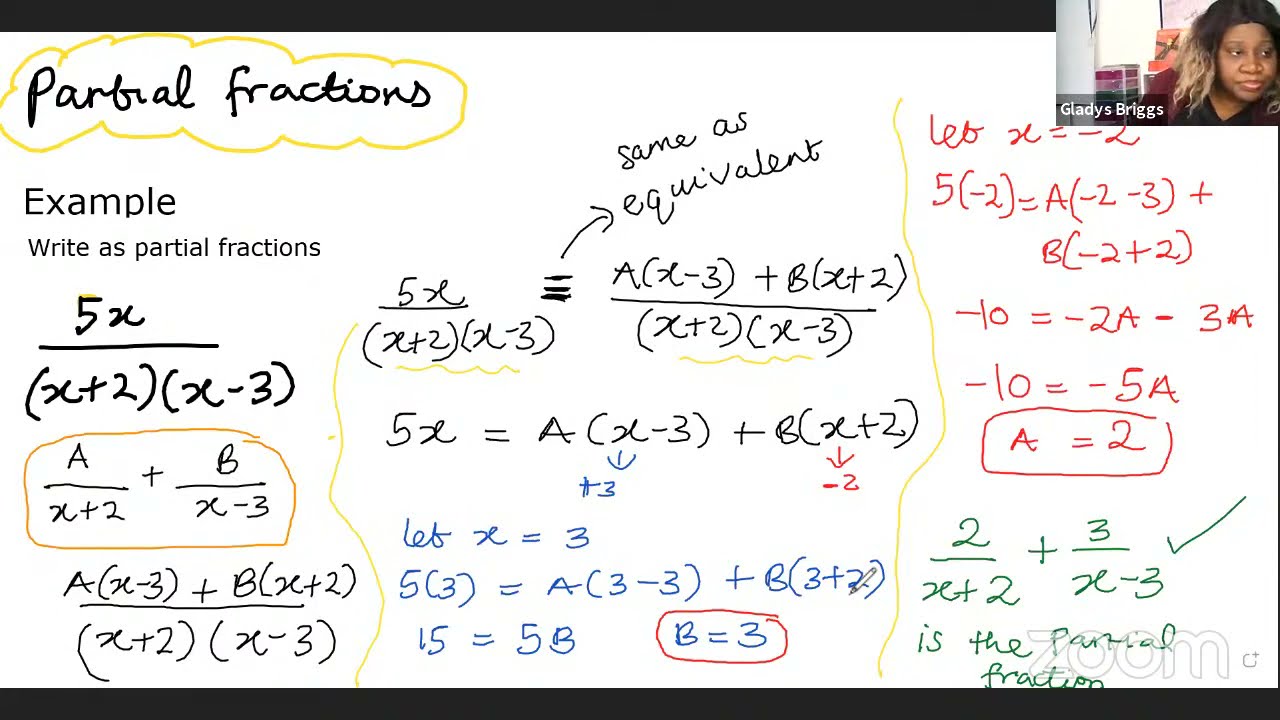 Partial fractions
Example
Write as partial fractions
5x
(x+2)(x-3)
A/x+2 + B/x-3
A(x-3) + B(x+2)
(x+2)(x-3)
same as
equivalent
5x/(x+2)(x-3) ≡ A(x-3) + B(x+2)/(x+2)(x-3)
5x = A(x-3) + B(x+2)
+3 -2
let x = 3
5(3) = A(3-3) + B(3+2)
15 = 5B B = 3
Gladys Briggs
let x = -2
5(-2) = A(-2-3) +
B(-2+2)
-10 = -2A - 3A
-10 = -5A
A = 2
2/x+2 + 3/x-3 ✓
is the partial
fraction
zoom